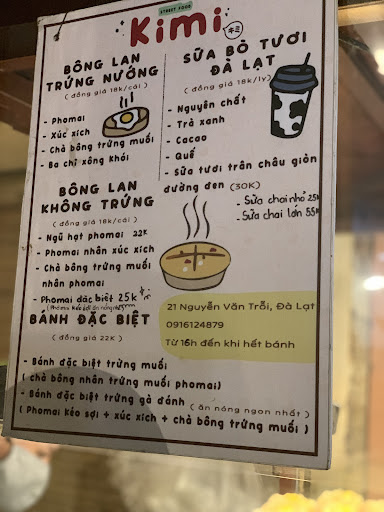 STREET FOOD
Kimi
BÔNG LAN
TRỨNG NƯỚNG
( đồng giá 18k/cái )
- Phomai
- Xúc xích
- Chà bông trứng muối
- Ba chỉ xông khói
SỮA BÒ TƯƠI
ĐÀ LẠT
( đồng giá 18k/ly )
- Nguyên chất
- Trà xanh
- Cacao
- Quế
- Sữa tươi trân châu giòn
đường đen (30K)
- Sữa chai nhỏ 25K
- Sữa chai lớn 55K
BÔNG LAN
KHÔNG TRỨNG
( đồng giá 18k/cái )
- Ngũ hạt phomai 22K
- Phomai nhân xúc xích
- Chà bông trứng muối
nhân phomai
- Phomai đặc biệt 25k
21 Nguyễn Văn Trỗi, Đà Lạt
0916124879
Từ 16h đến khi hết bánh
BÁNH ĐẶC BIỆT
( đồng giá 22K )
- Bánh đặc biệt trứng muối
( chà bông nhân trứng muối phomai)
- Bánh đặc biệt trứng gà đánh ( ăn nóng ngon nhất )
( Phomai kéo sợi + xúc xích + chà bông trứng muối )